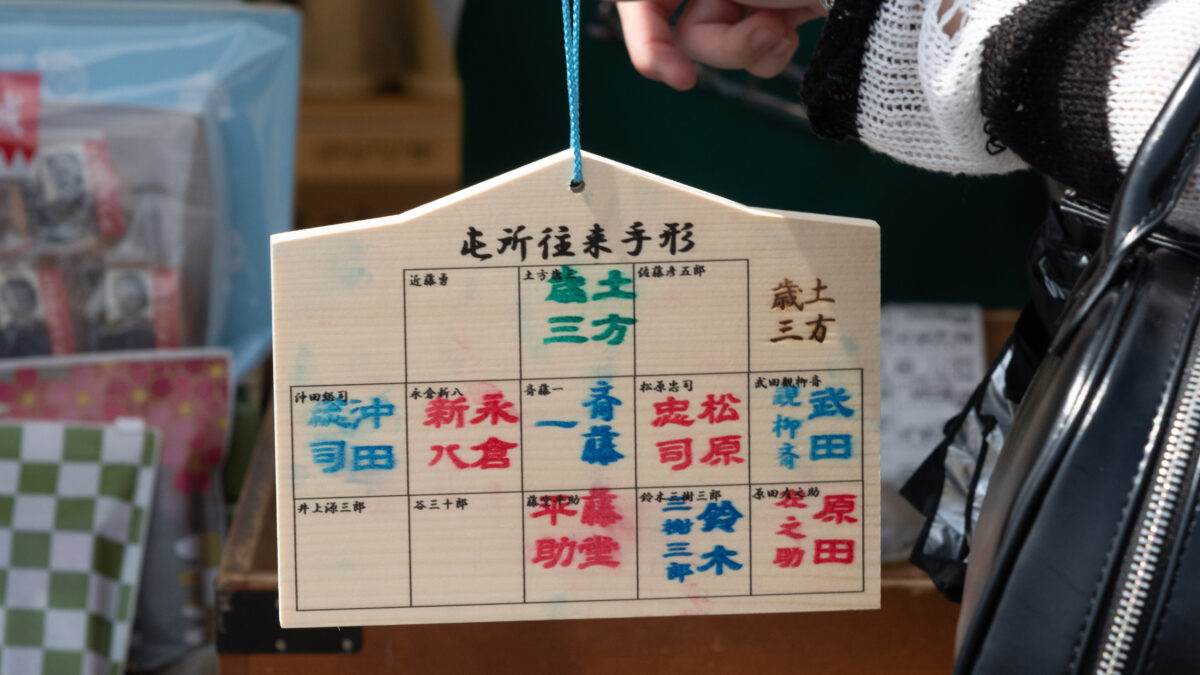 屯所往来手形
近藤勇
土方歳三
土方
歳三
佐藤彦五郎
土方
歳三
沖田総司
沖田
総司
永倉新八
永倉
新八
斉藤一
斉藤
一
松原忠司
松原
忠司
武田観柳斉
武田
観柳斉
井上源三郎
谷三十郎
藤堂平助
藤堂
平助
鈴木三樹三郎
鈴木
三樹三郎
原田左之助
原田
左之助